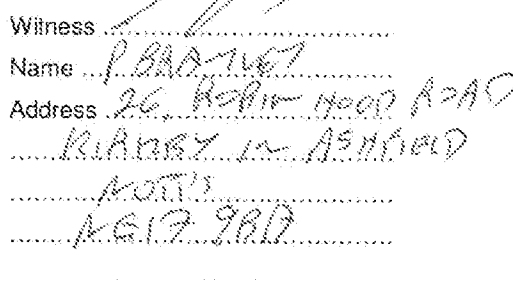 Witness
Name P BARTLET
Address 26, ROBIN HOOD ROAD
KIRKBY IN ASHFIELD
NOTT'S
NG17